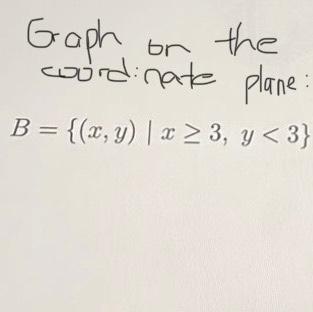 Graph on the
coordinate plane:
B = {(x, y) | x ≥ 3, y < 3}